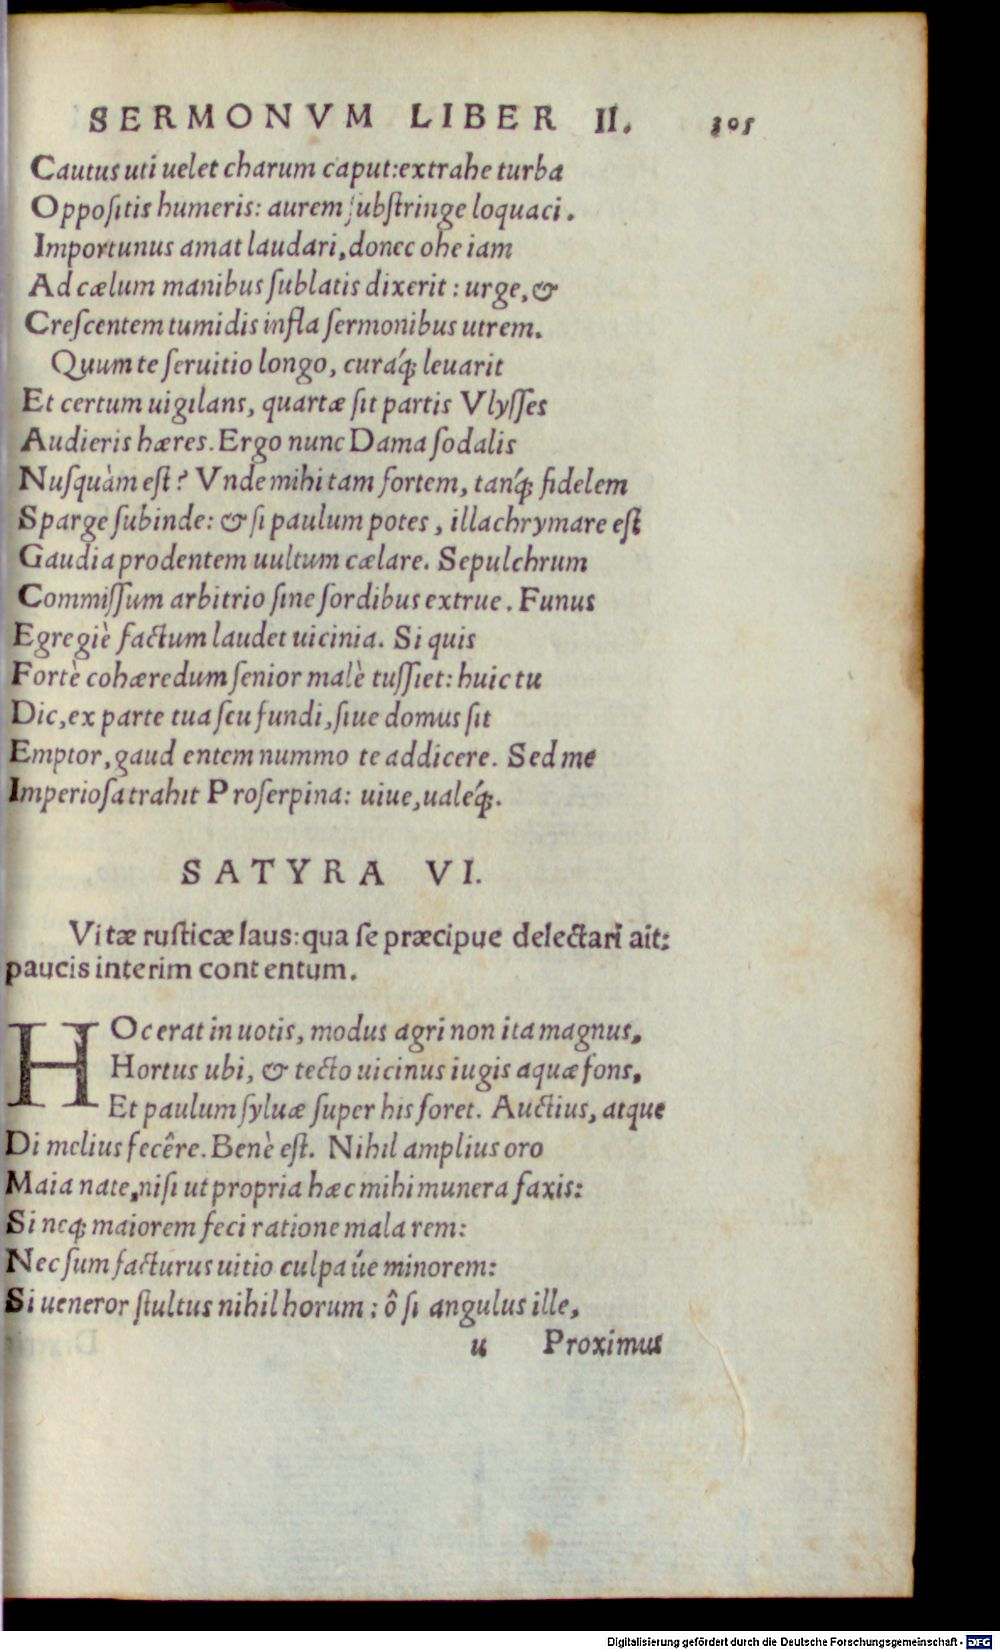 SERMONVM LIBER II. 305
Cautus uti uelet charum caput: extrahe turba
Oppoſitis humeris: aurem ſubſtringe loquaci.
Importunus amat laudari, donec ohe iam
Ad cælum manibus ſublatis dixerit: urge, &
Creſcentem tumidis infla ſermonibus utrem.
Quum te ſeruitio longo, curáq; leuarit
Et certum uigilans, quartæ ſit partis Vlyſſes
Audieris hæres. Ergo nunc Dama ſodalis
Nuſquàm eſt? Vnde mihi tam fortem, tanq́; fidelem
Sparge ſubinde: & ſi paulum potes, illachrymare eſt
Gaudia prodentem uultum cælare. Sepulchrum
Commiſſum arbitrio ſine ſordibus extrue. Funus
Egregiè factum laudet uicinia. Si quis
Fortè cohæredum ſenior malè tuſſiet: huic tu
Dic, ex parte tua ſeu fundi, ſiue domus ſit
Emptor, gaud entem nummo te addicere. Sed me
Imperioſa trahit Proſerpina: uiue, ualéq;.
SATYRA VI.
Vitæ ruſticæ laus: qua ſe præcipue delectari ait:
paucis interim cont entum.
HOc erat in uotis, modus agri non ita magnus,
Hortus ubi, & tecto uicinus iugis aquæ fons,
Et paulum ſyluæ ſuper his foret. Auctius, atque
Di melius fecêre. Benè eſt. Nihil amplius oro
Maia nate, niſi ut propria hæc mihi munera faxis:
Si neq; maiorem feci ratione mala rem:
Nec ſum facturus uitio culpa úe minorem:
Si ueneror ſtultus nihil horum: ô ſi angulus ille,
u Proximus
Digitalisierung gefördert durch die Deutsche Forschungsgemeinschaft - DFG